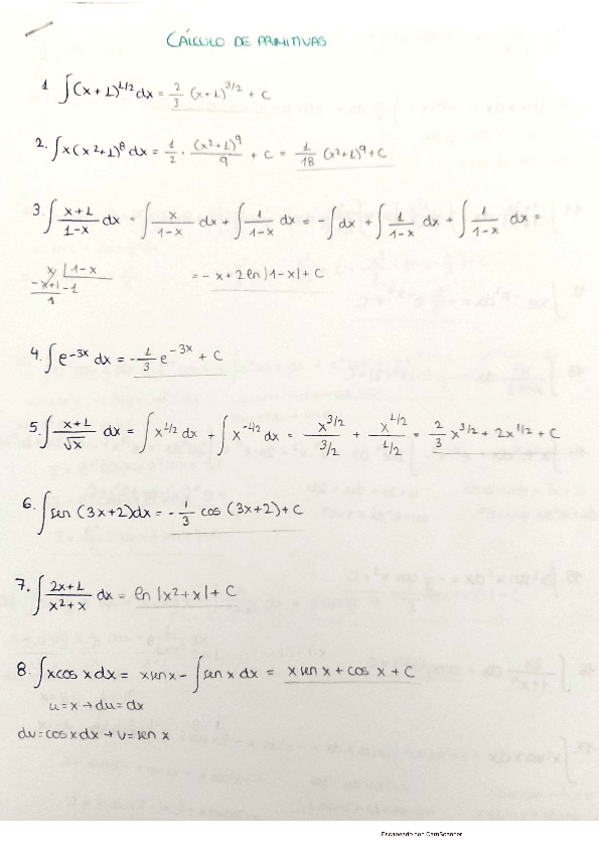 CÁLCULO DE PRIMITIVAS
1 ∫(x+1)^{1/2} dx = 2/3 (x+1)^{3/2} + C
2. ∫x(x²+1)⁸ dx = 1/2 · (x²+1)⁹/9 + C = 1/18 (x²+1)⁹ + C
3. ∫ (x+1)/(1-x) dx = ∫ x/(1-x) dx + ∫ 1/(1-x) dx = -∫dx + ∫ 1/(1-x) dx + ∫ 1/(1-x) dx =
x |1-x
-x+1 -1
1
= -x + 2 ln|1-x| + C
4. ∫e^{-3x} dx = -1/3 e^{-3x} + C
5. ∫ (x+1)/√x dx = ∫x^{1/2} dx + ∫x^{-1/2} dx = x^{3/2}/(3/2) + x^{1/2}/(1/2) = 2/3 x^{3/2} + 2x^{1/2} + C
6. ∫sen (3x+2)dx = -1/3 cos (3x+2) + C
7. ∫ (2x+1)/(x²+x) dx = ln|x²+x| + C
8. ∫xcos x dx = x sen x - ∫sen x dx = x sen x + cos x + C
u=x → du=dx
dv=cos x dx → v=sen x
Escaneado con CamScanner